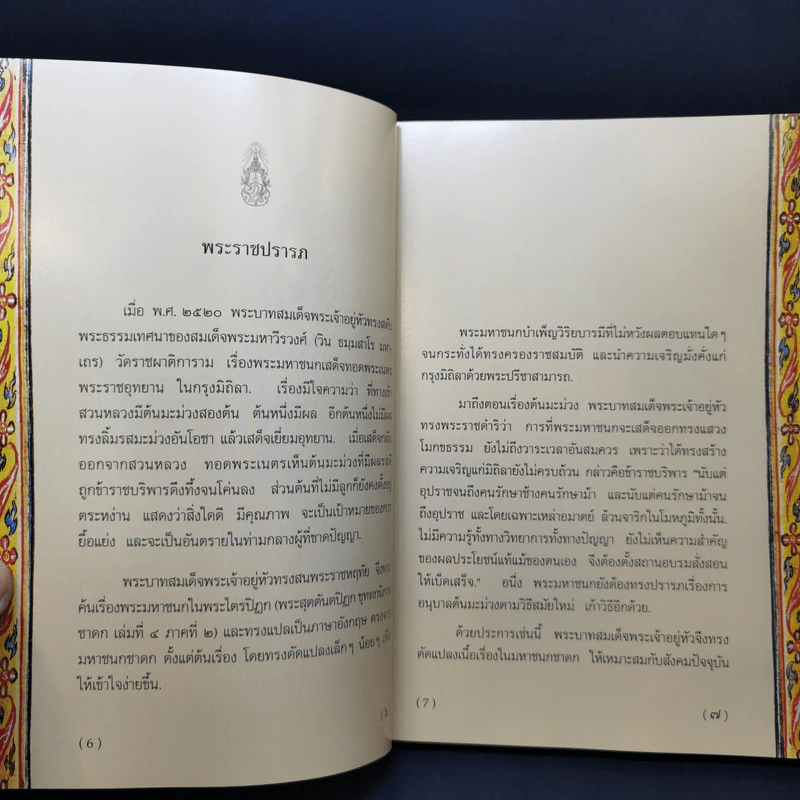 พระราชปรารภ
เมื่อ พ.ศ. ๒๕๒๐ พระบาทสมเด็จพระเจ้าอยู่หัวทรงสดับ
พระธรรมเทศนาของสมเด็จพระมหาวีรวงศ์ (วิน ธมฺมสาโร มหา-
เถร) วัดราชผาติการาม เรื่องพระมหาชนกเสด็จทอดพระเนตร
พระราชอุทยาน ในกรุงมิถิลา. เรื่องมีใจความว่า ที่ทางเข้า
สวนหลวงมีต้นมะม่วงสองต้น ต้นหนึ่งมีผล อีกต้นหนึ่งไม่มีผล
ทรงลิ้มรสมะม่วงอันโอชา แล้วเสด็จเยี่ยมอุทยาน. เมื่อเสด็จกลับ
ออกจากสวนหลวง ทอดพระเนตรเห็นต้นมะม่วงที่มีผลรสดี
ถูกข้าราชบริพารดึงทึ้งจนโค่นลง ส่วนต้นที่ไม่มีลูกก็ยังคงตั้งอยู่
ตระหง่าน แสดงว่าสิ่งใดดี มีคุณภาพ จะเป็นเป้าหมายของการ
ยื้อแย่ง และจะเป็นอันตรายในท่ามกลางผู้ที่ขาดปัญญา.
พระบาทสมเด็จพระเจ้าอยู่หัวทรงสนพระราชหฤทัย จึงทรง
ค้นเรื่องพระมหาชนกในพระไตรปิฎก (พระสุตตันตปิฎก ขุททกนิกาย
ชาดก เล่มที่ ๔ ภาคที่ ๒) และทรงแปลเป็นภาษาอังกฤษ ตรงจาก
มหาชนกชาดก ตั้งแต่ต้นเรื่อง โดยทรงดัดแปลงเล็กๆ น้อยๆ เพื่อ
ให้เข้าใจง่ายขึ้น.
(6)
พระมหาชนกบำเพ็ญวิริยบารมีที่ไม่หวังผลตอบแทนใดๆ
จนกระทั่งได้ทรงครองราชสมบัติ และนำความเจริญมั่งคั่งแก่
กรุงมิถิลาด้วยพระปรีชาสามารถ.
มาถึงตอนเรื่องต้นมะม่วง พระบาทสมเด็จพระเจ้าอยู่หัว
ทรงพระราชดำริว่า การที่พระมหาชนกจะเสด็จออกทรงแสวง
โมกขธรรม ยังไม่ถึงวาระเวลาอันสมควร เพราะว่าได้ทรงสร้าง
ความเจริญแก่มิถิลายังไม่ครบถ้วน กล่าวคือข้าราชบริพาร "นับแต่
อุปราชจนถึงคนรักษาช้างคนรักษาม้า และนับแต่คนรักษาม้าจน
ถึงอุปราช และโดยเฉพาะเหล่าอมาตย์ ล้วนจาริกในโมหภูมิทั้งนั้น.
ไม่มีความรู้ทั้งทางวิทยาการทั้งทางปัญญา ยังไม่เห็นความสำคัญ
ของผลประโยชน์แท้แม้ของตนเอง จึงต้องตั้งสถานอบรมสั่งสอน
ให้เบ็ดเสร็จ." อนึ่ง พระมหาชนกยังต้องทรงปรารภเรื่องการ
อนุบาลต้นมะม่วงตามวิธีสมัยใหม่ เก้าวิธีอีกด้วย.
ด้วยประการเช่นนี้ พระบาทสมเด็จพระเจ้าอยู่หัวจึงทรง
ดัดแปลงเนื้อเรื่องในมหาชนกชาดก ให้เหมาะสมกับสังคมปัจจุบัน
(7)
(๗)